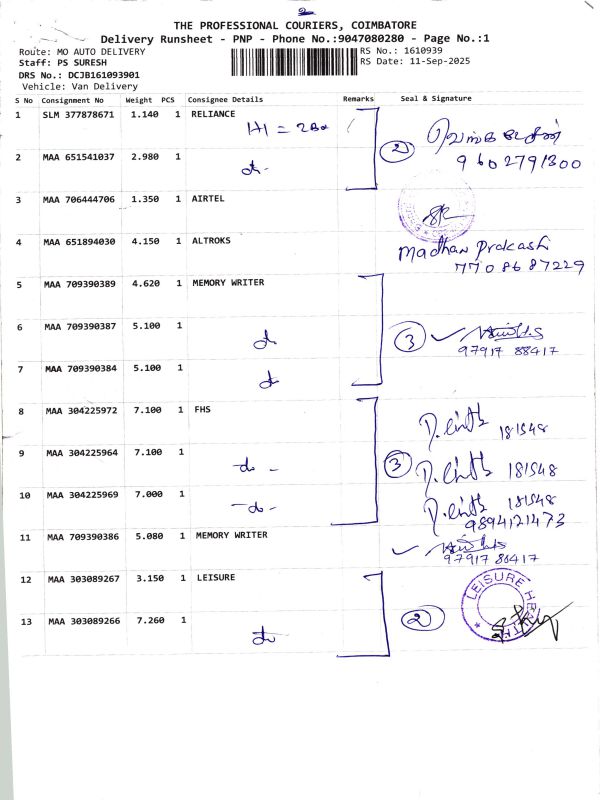 2
THE PROFESSIONAL COURIERS, COIMBATORE
Delivery Runsheet - PNP - Phone No.:9047080280 - Page No.:1
Route: MO AUTO DELIVERY
RS No.: 1610939
Staff: PS SURESH
RS Date: 11-Sep-2025
DRS No.: DCJB161093901
Vehicle: Van Delivery
S No Consignment No Weight PCS Consignee Details Remarks Seal & Signature
1 SLM 377878671 1.140 1 RELIANCE
1+1 =
2 MAA 651541037 2.980 1 do- 2 9602791300
3 MAA 706444706 1.350 1 AIRTEL
4 MAA 651894030 4.150 1 ALTROKS Madhan Prakash
7708687229
5 MAA 709390389 4.620 1 MEMORY WRITER
6 MAA 709390387 5.100 1 do 3
97917 88417
7 MAA 709390384 5.100 1 do
8 MAA 304225972 7.100 1 FHS 181548
9 MAA 304225964 7.100 1 -do- 3 181548
10 MAA 304225969 7.000 1 -do- 181548
9894121473
11 MAA 709390386 5.080 1 MEMORY WRITER
97917 88417
12 MAA 303089267 3.150 1 LEISURE
LEISURE
13 MAA 303089266 7.260 1 do 2